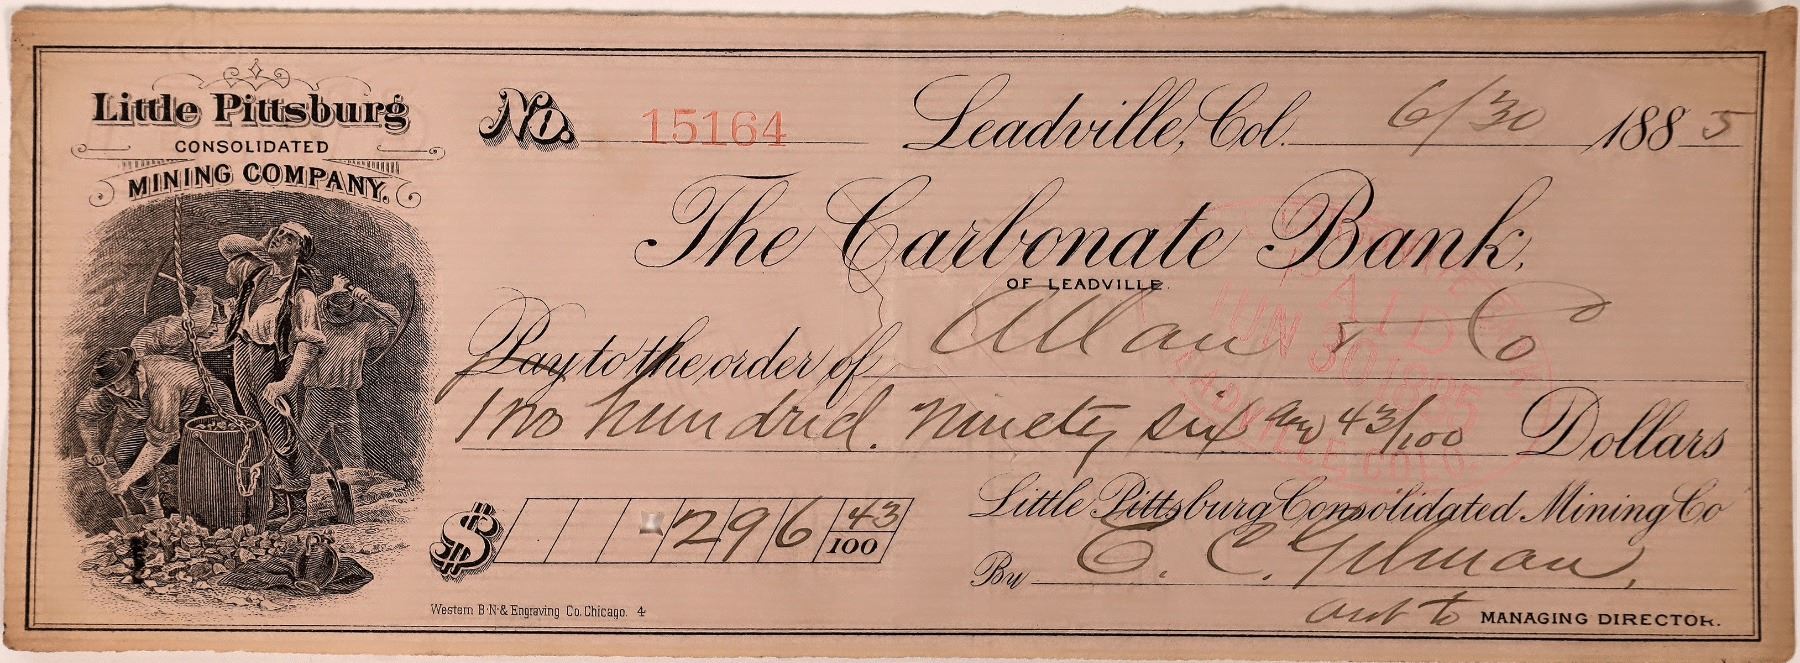 Little Pittsburg
CONSOLIDATED
MINING COMPANY.
No. 15164
Leadville, Col. 6/30 1885
The Carbonate Bank,
OF LEADVILLE.
Pay to the order of Allan & Co
Two hundrid. ninety six and 43/100 Dollars
$ 296 43/100
Little Pittsburg Consolidated Mining Co
By E. C. Gilman,
asst to MANAGING DIRECTOR.
Western B.N. & Engraving Co. Chicago. 4
CARBONATE BANK
PAID
JUN 30 1885
LEADVILLE, COLO.